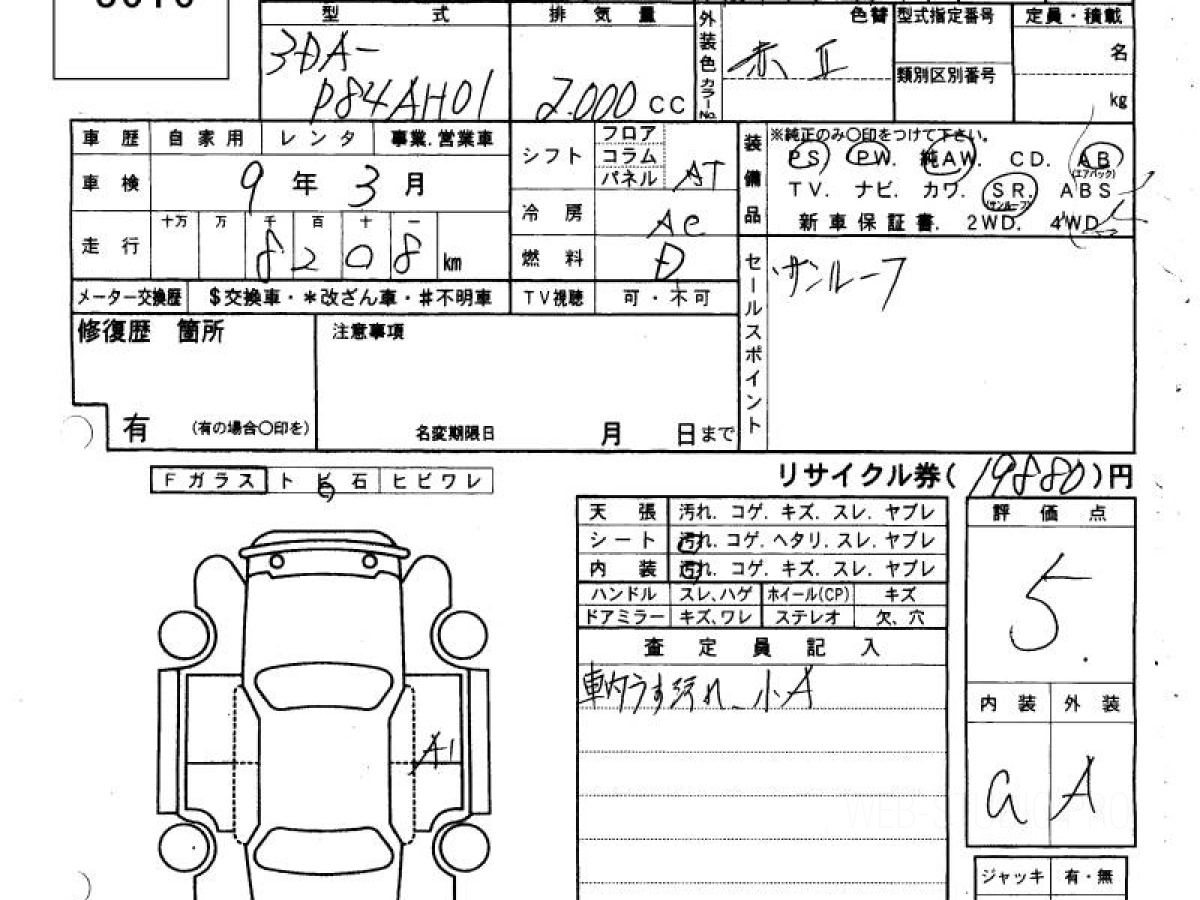 型 式 排 気 量 外装色 カラーNo. 色替 型式指定番号 定員・積載
3DA-
P84AH01 2.000 CC 赤 II 類別区別番号 名
kg
車 歴 自 家 用 レ ン タ 事業.営業車 シフト フロア コラム パネル AT 装備品 ※純正のみ○印をつけて下さい。
PS. PW. 純AW. CD. AB (エアバック)
車 検 9 年 3 月 TV. ナビ. カワ. SR. (サンルーフ) ABS
冷 房 AC 新 車 保 証 書. 2WD. 4WD
十万 万 千 百 十 一
走 行 8 2 0 8 km 燃 料 D セールスポイント サンルーフ
メーター交換歴 $交換車・*改ざん車・#不明車 TV視聴 可・不可
修復歴 箇所 注意事項
有 (有の場合○印を) 名変期限日 月 日まで
Fガラス ト ビ 石 ヒビワレ リサイクル券(19880)円
天 張 汚れ. コゲ. キズ. スレ. ヤブレ 評 価 点
シート 汚れ. コゲ. ヘタリ. スレ. ヤブレ
内 装 汚れ. コゲ. キズ. スレ. ヤブレ 5.
ハンドル スレ、ハゲ ホイール(CP) キズ
ドアミラー キズ、ワレ ステレオ 欠、穴
査 定 員 記 入
車内うす汚れ、小A
内 装 外 装
A1
a A
ジャッキ 有・無